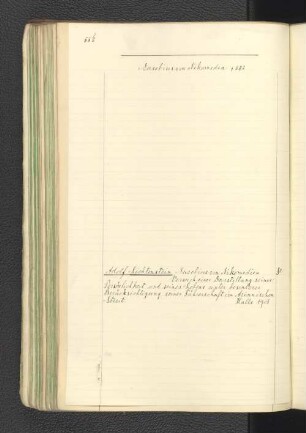 Eusebius von Nikomedia
Adolf Lichtenstein Eusebius von Nikomedien 8°
Versuch einer Darstellung seiner
Persönlichkeit und seines Lebens unter besonderer
Berücksichtigung seiner Führerschaft im Arianischen
Streit. Halle 1903